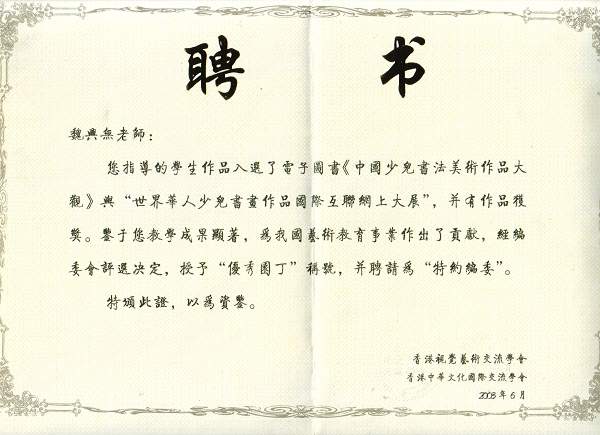 聘 书
魏興無老師:
您指導的學生作品入選了電子圖書《中國少兒書法美術作品大
觀》與“世界華人少兒書畫作品國際互聯網上大展”,并有作品獲
獎。鑒于您教學成果顯著,爲我國藝術教育事業作出了貢獻,經編
委會評選决定,授予“優秀園丁”稱號,并聘請爲“特約編委”。
特頒此證,以爲資鑒。
香港視覺藝術交流學會
香港中華文化國際交流學會
2003年6月